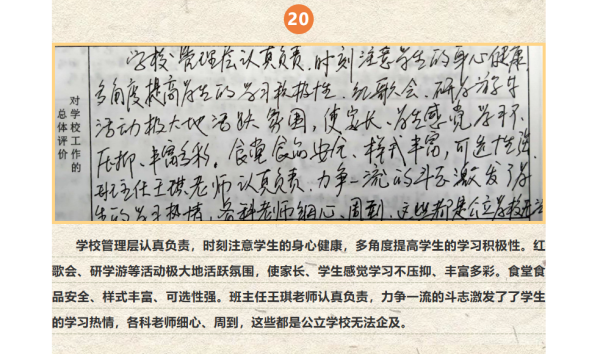 20
对学校工作的
总体评价
学校管理层认真负责,时刻注意学生的身心健康,
多角度提高学生的学习积极性。红歌会、研学游等
活动极大地活跃氛围,使家长、学生感觉学习不
压抑、丰富多彩。食堂食品安全、样式丰富,可选性强。
班主任王琪老师认真负责,力争一流的斗志激发了学
生的学习热情,各科老师细心、周到,这些都是公立学校无法
学校管理层认真负责,时刻注意学生的身心健康,多角度提高学生的学习积极性。红
歌会、研学游等活动极大地活跃氛围,使家长、学生感觉学习不压抑、丰富多彩。食堂食
品安全、样式丰富、可选性强。班主任王琪老师认真负责,力争一流的斗志激发了了学生
的学习热情,各科老师细心、周到,这些都是公立学校无法企及。